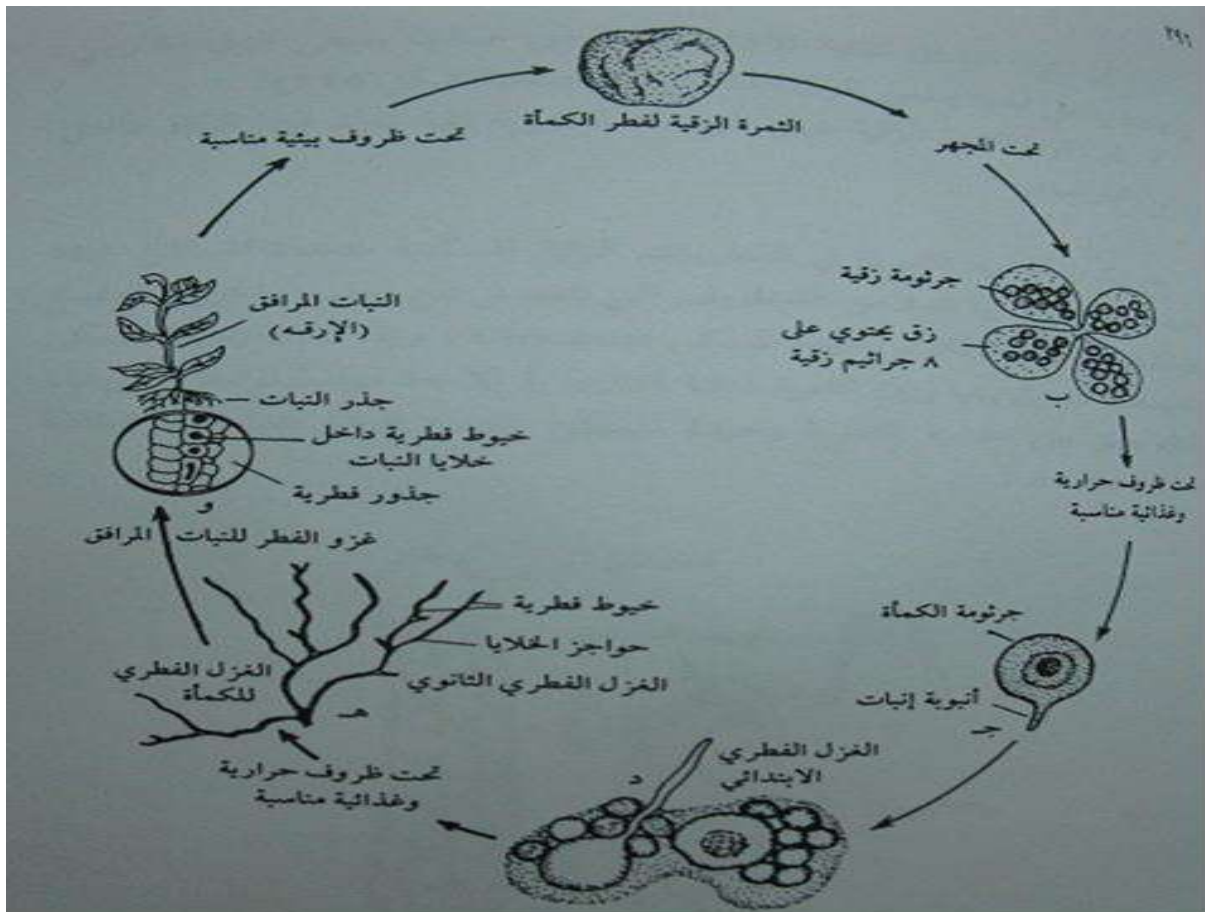 ٢٩٦
الثمرة الزقية لفطر الكمأة
تحت المجهر
جرثومة زقية
زق يحتوي على
٨ جراثيم زقية
ب
تحت ظروف حرارية
وغذائية مناسبة
جرثومة الكمأة
أنبوبة إنبات
جـ
الغزل الفطري
الابتدائي
د
تحت ظروف حرارية
وغذائية مناسبة
هـ
خيوط فطرية
حواجز الخلايا
الغزل الفطري الثانوي
الغزل الفطري
للكمأة
غزو الفطر للنبات المرافق
و
النبات المرافق
(الإرقه)
جذر النبات
خيوط فطرية داخل
خلايا النبات
جذور فطرية
تحت ظروف بيئية مناسبة